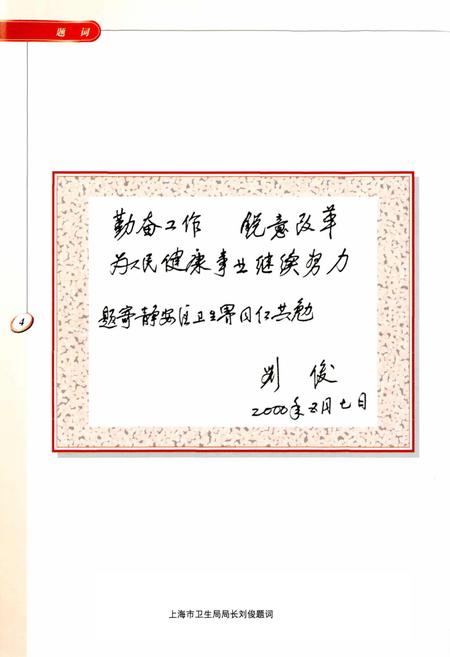 题 词
勤奋工作 锐意改革
为人民健康事业继续努力
题寄静安区卫生界同仁共勉
刘俊
2000年五月七日
4
上海市卫生局局长刘俊题词